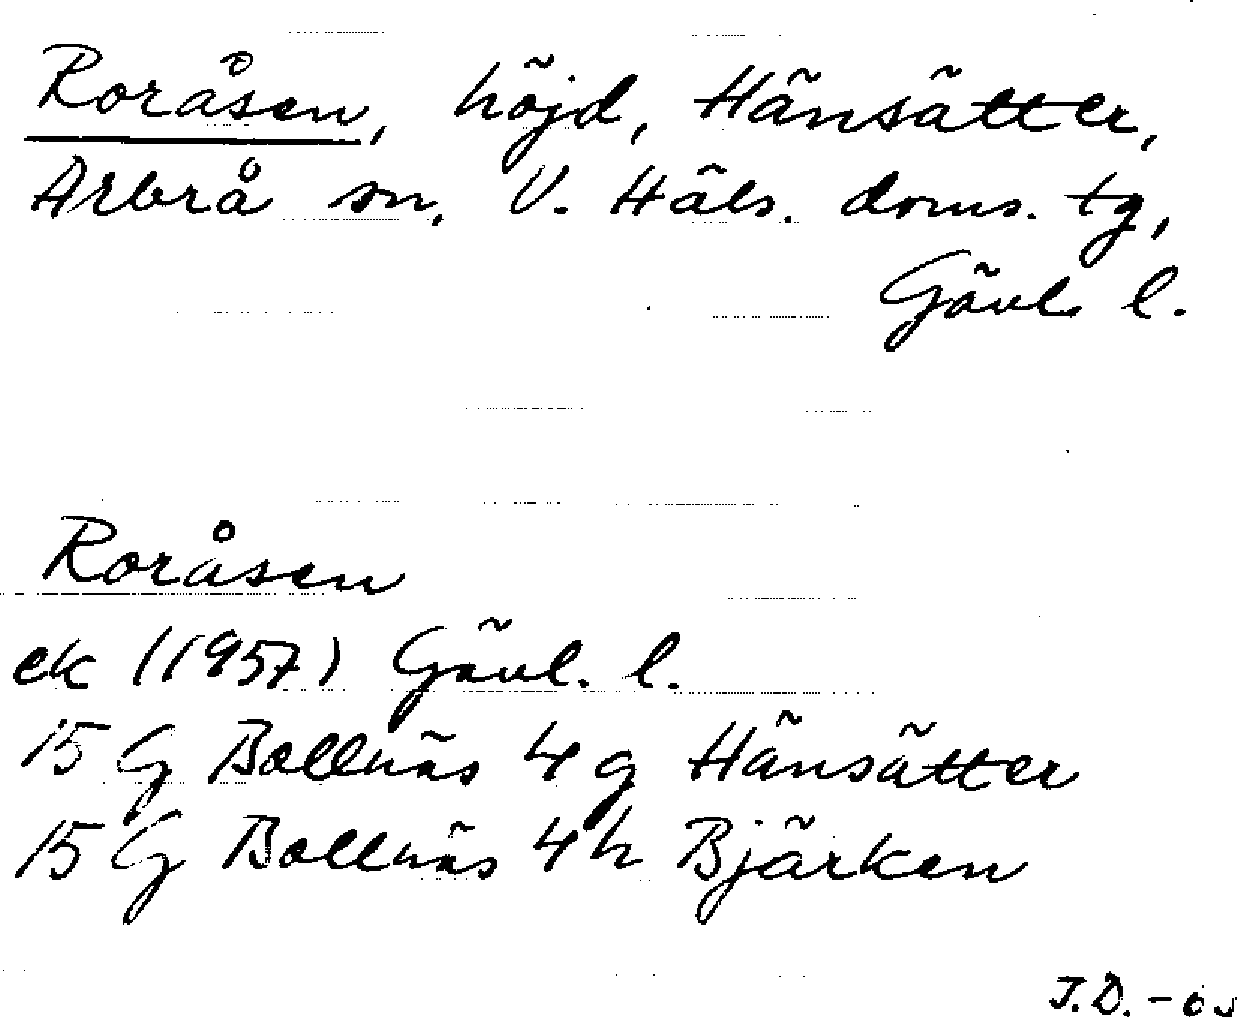 Roråsen, höjd, Hänsätter,
Arbrå sn, V. Häls. doms. tg,
Gävl. l.
Roråsen
ek (1957) Gävl. l.
15 G Bollnäs 4 g Hänsätter
15 G Bollnäs 4 h Bjärken
J.D.